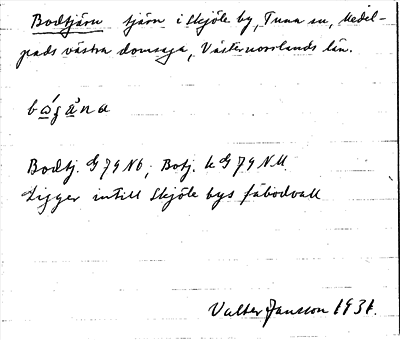 Bodtjärn tjärn i Skjöle by, Tuna sn, Medel-
pads västra domsaga, Västernorrlands län.
Bodtj. G 79 N6; Botj. k G 79 NU.
Ligger intill Skjöle bys fäbodvall
Valter Jansson 1931.